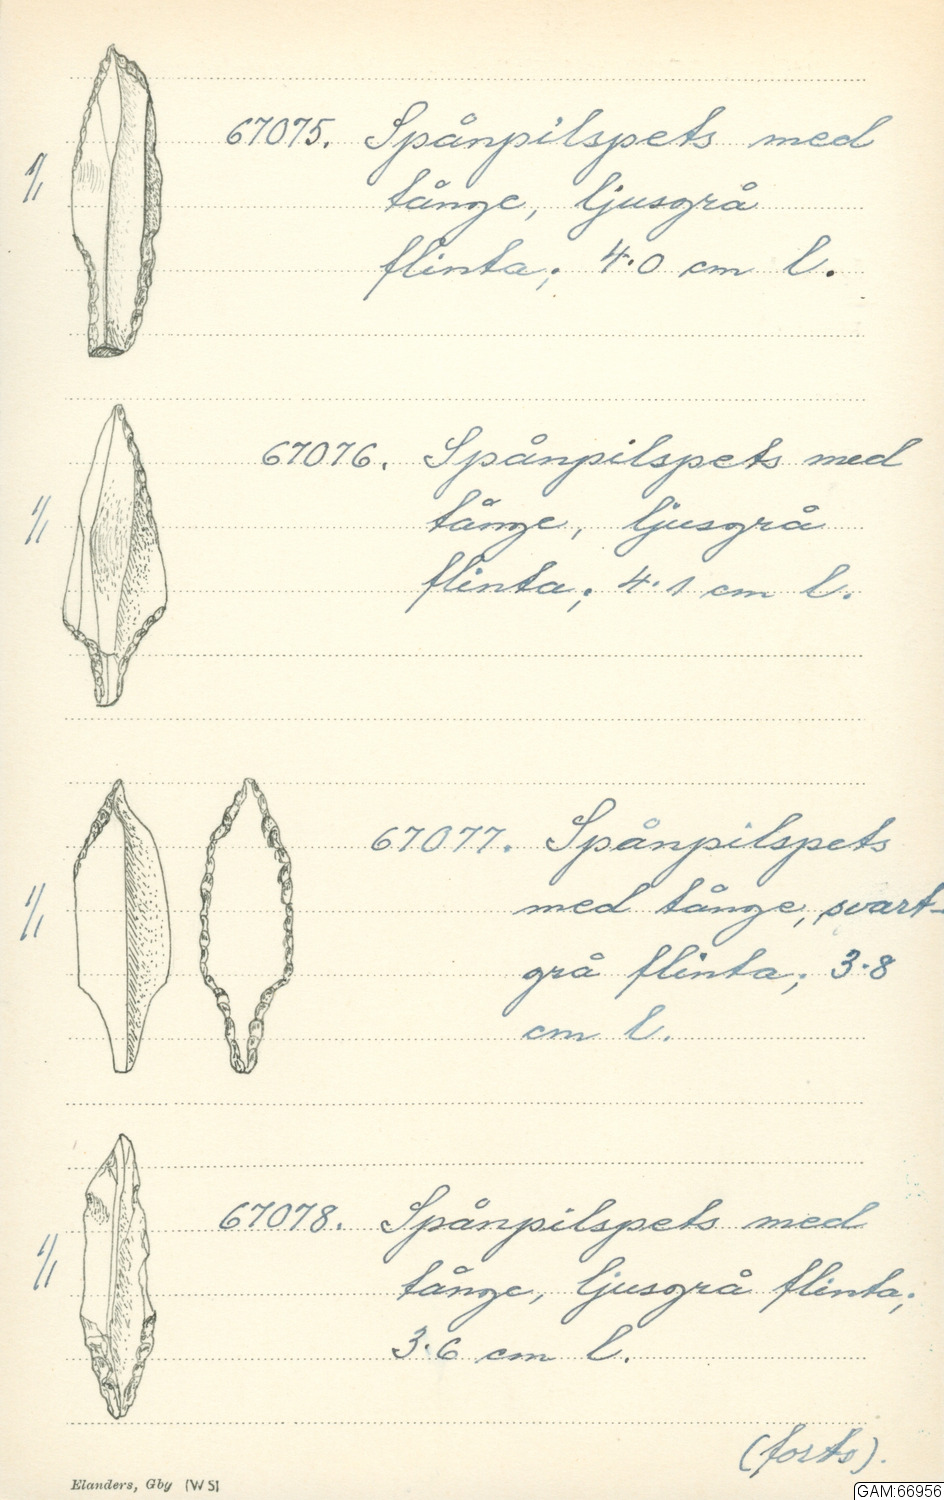 1/1
67075. Spånpilspets med
tånge, ljusgrå
flinta; 4.0 cm l.
1/1
67076. Spånpilspets med
tånge, ljusgrå
flinta; 4.1 cm l.
1/1
67077. Spånpilspets
med tånge, svart-
grå flinta; 3.8
cm l.
1/1
67078. Spånpilspets med
tånge, ljusgrå flinta;
3.6 cm l.
(forts).
Elanders, Gby (W5)
GAM:66956